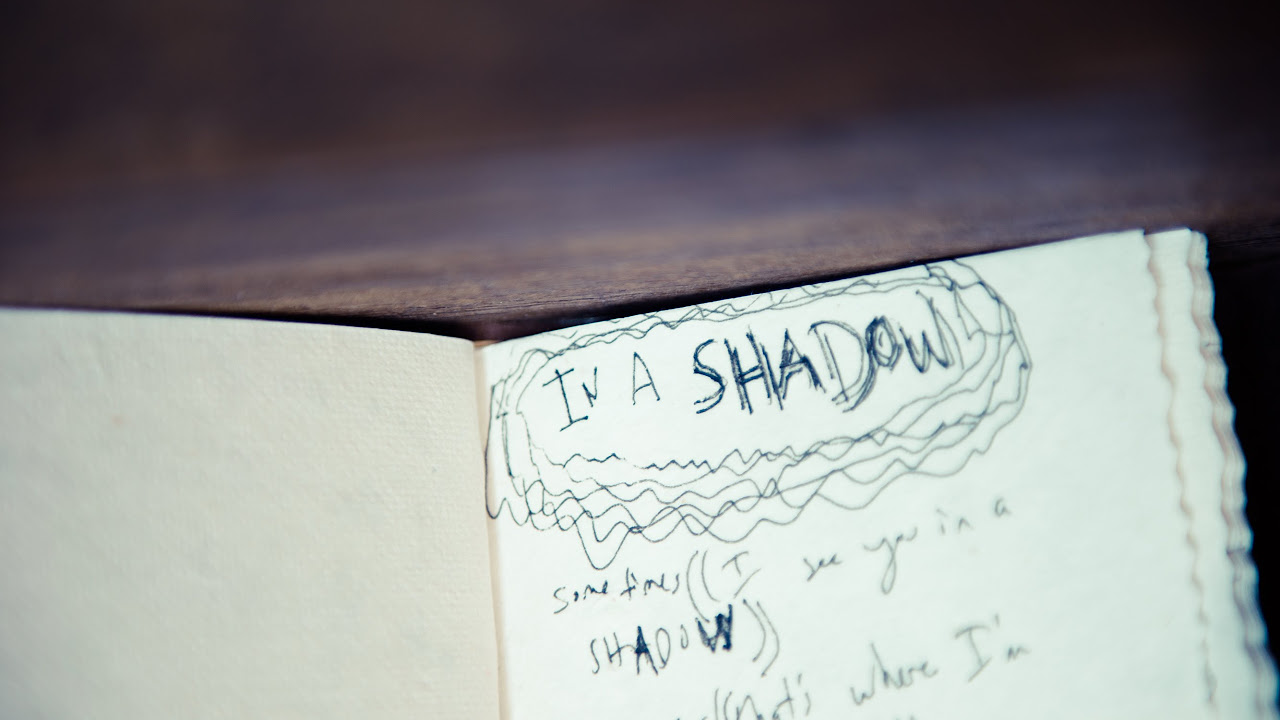 IN A SHADOW
sometimes((I see you in a
SHADOW))
((that's where I'm